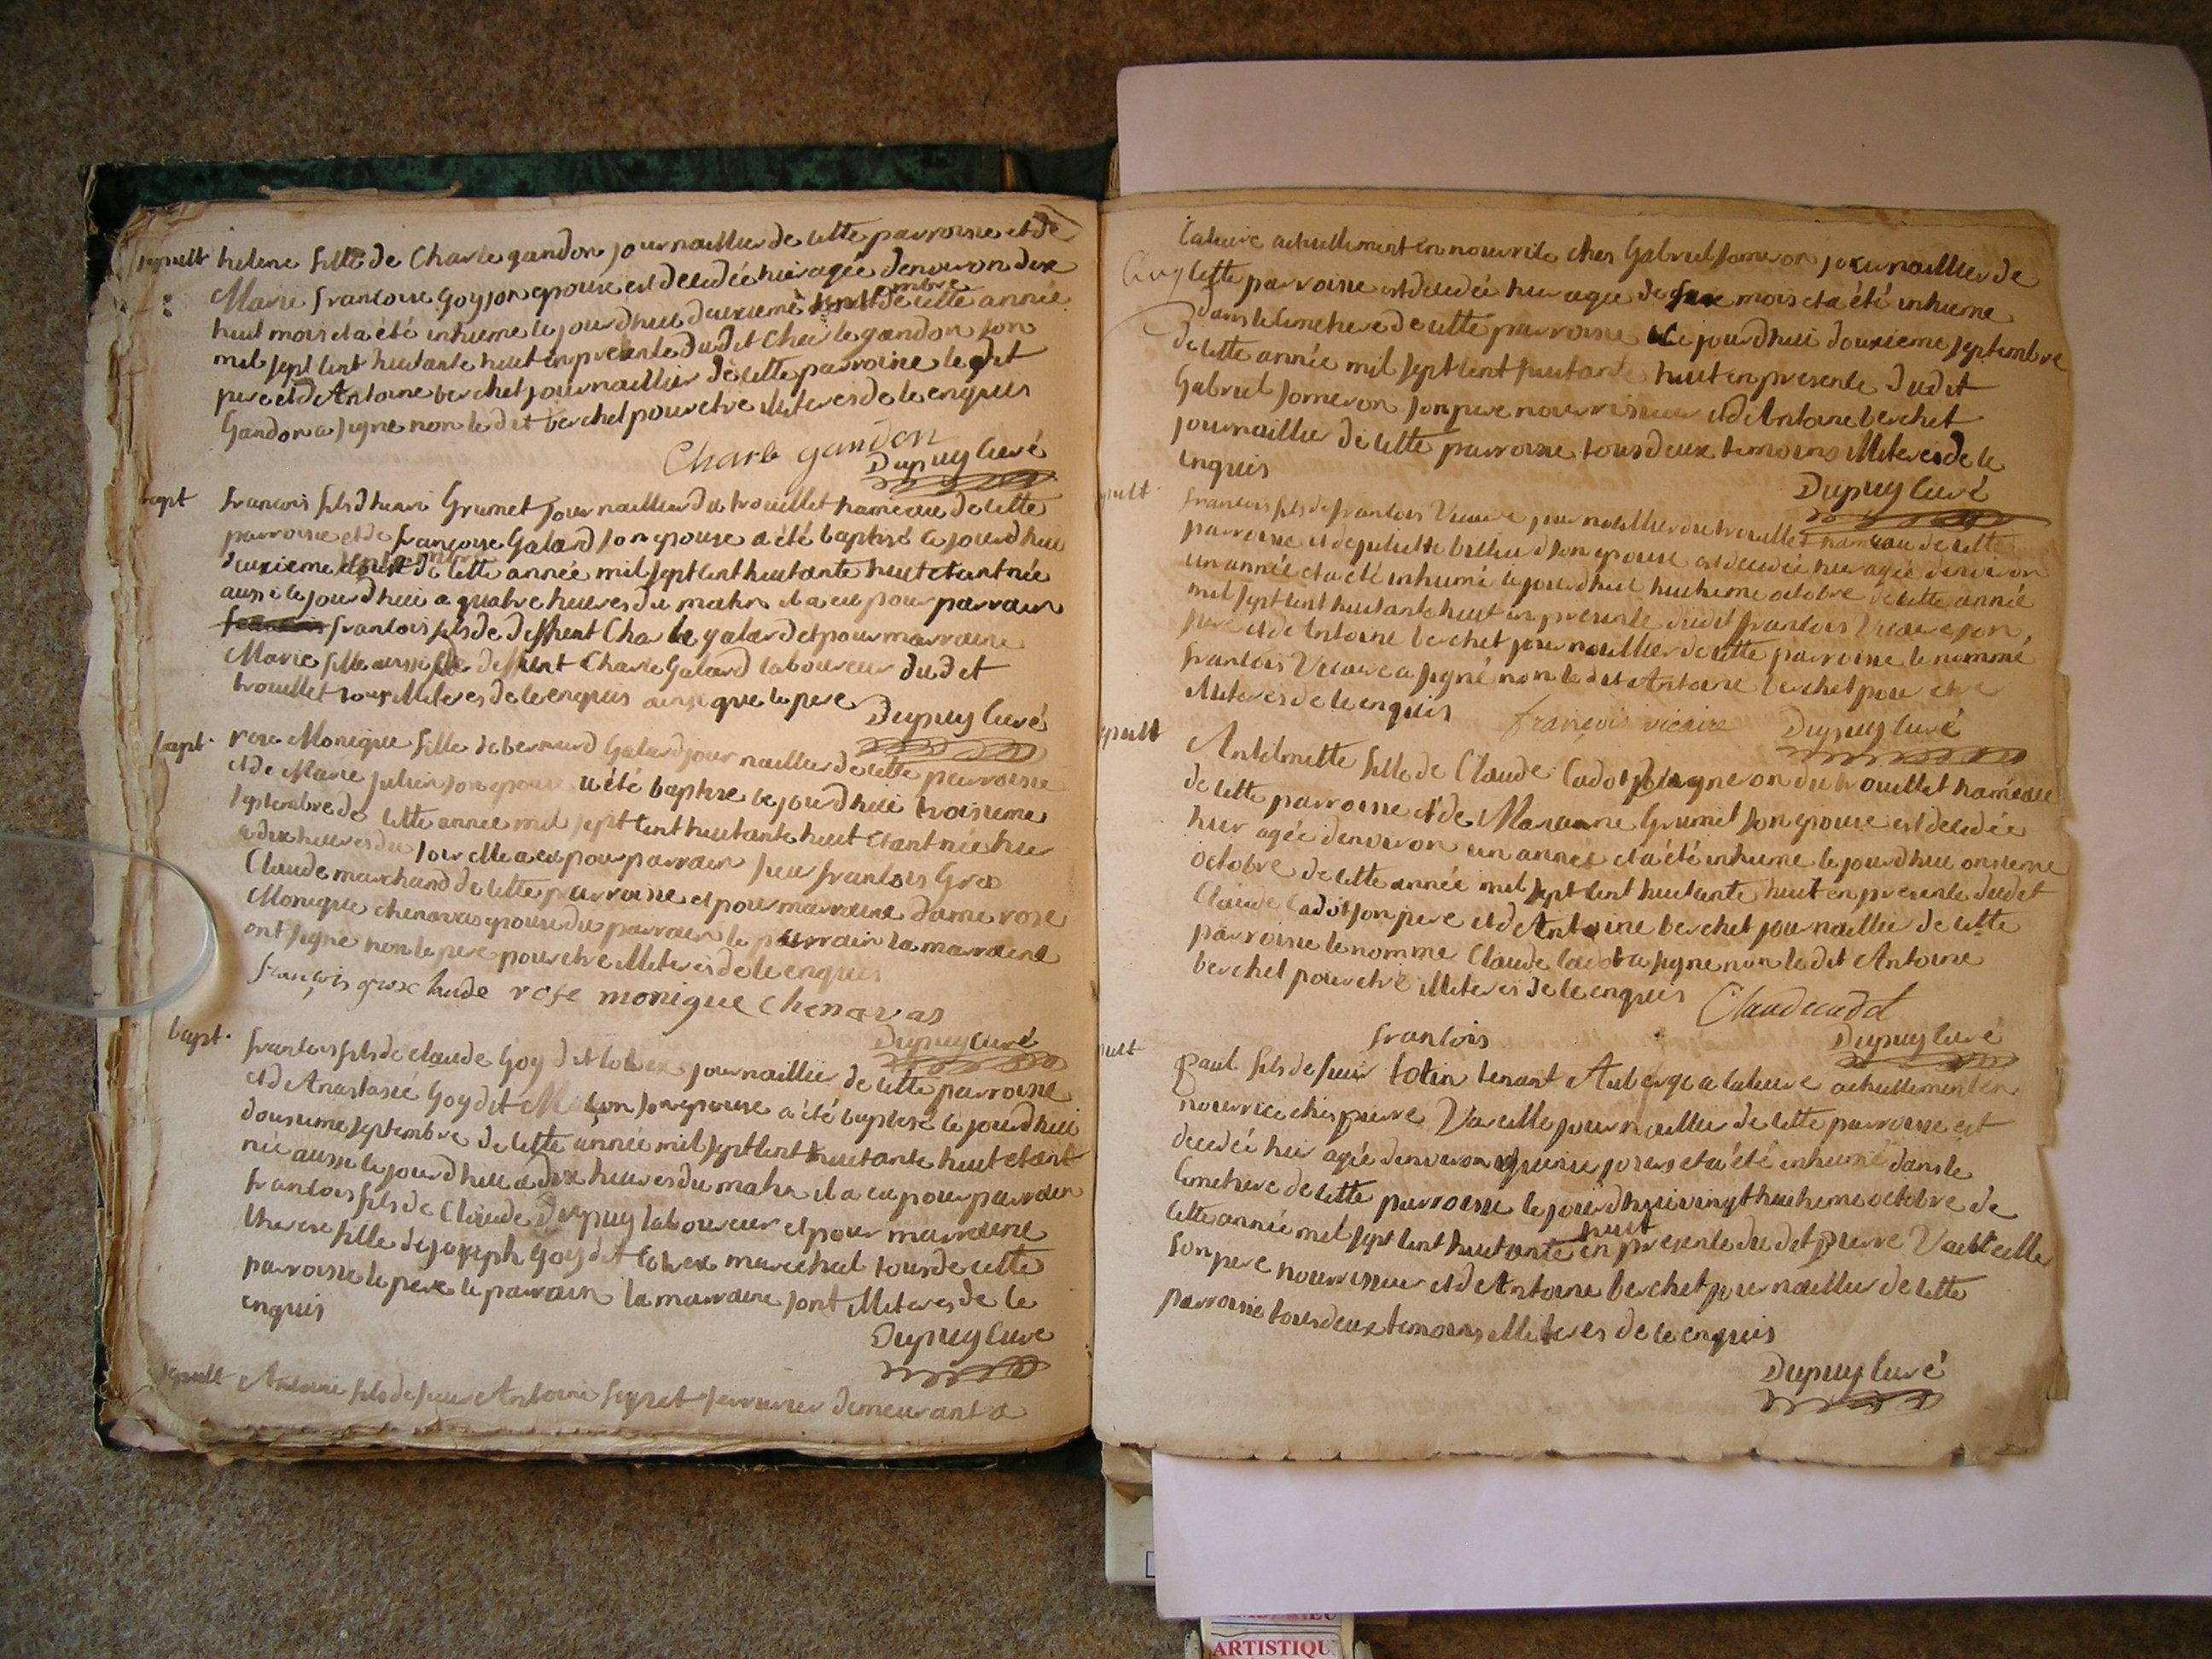 sepult helene fille de Charle gandon journaillier de cette parroisse et de
Marie francoise Goy son epouse est decedée hier agée denviron dix
huit mois et a été inhume ce jourdhui deuxieme septembre de cette année
mil sept cent huitante huit en presence dudit Charle gandon son
pere et dAntoine berchet journaillier de cette parroisse ledit
Gandon a signe non le dit berchet pour etre illiteres de ce enquis
Charle gandon
Dupuy Curé
bapt francois fils dhenri Grumet journaillier du trouillet hameau de cette
parroisse et de francoise Galard son epouse a été baptisé ce jourdhui
deuxieme septembre de cette année mil sept cent huitante huit etant née
aussi ce jourdhui a quatre heures du matin il a eu pour parrain
francois fils de deffunt Charle galard et pour marraine
Marie fille aussi de deffunt Charle Galard laboureur dudit
trouillet tous illiteres de ce enquis ainsi que le pere
Dupuy Curé
bapt rose Monique fille de bernard Galard journaillier de cette parroisse
et de Marie julien son epouse a été baptise ce jourdhui troisieme
septembre de cette année mil sept cent huitante huit etant née hier
a dix heures du soir elle a eu pour parrain sieur francois Gros
Claude marchand de cette parroisse et pour marraine dame rose
Monique chenavas epouse du parrain le parrain la marraine
ont signe non le pere pour etre illiteres de ce enquis
françois gros Claude rose monique Chenavas
Dupuy Curé
bapt francois fils de claude Goy dit journaillier de cette parroisse
et dAnastasie Goy dit son epouse a été baptisé ce jourdhui
douzieme septembre de cette année mil sept cent huitante huit etant
née aussi ce jourdhui a dix heures du matin il a eu pour parrain
francois fils de Claude Dupuy laboureur et pour marraine
therese fille de joseph Goy dit marechal tous de cette
parroisse le pere le parrain la marraine sont illiteres de ce
enquis
Dupuy Curé
sepult Antoine fils de sieur Antoine serrurier demeurant a
Caluire actuellement en nourrice ches Gabriel someron journaillier de
cette parroisse est decedée hier agée de mois et a été inhume
dans le cimetiere de cette parroisse ce jourdhui douzieme septembre
de cette année mil sept cent huitante huit en presence dudit
Gabriel someron son pere nourrissieur et dAntoine berchet
journaillier de cette parroisse tous deux temoins illiteres de ce
enquis
Dupuy Curé
francois fils de francois Vicaire journaillier du trouillet hameau de cette
parroisse et de juliette son epouse est decedée hier agée denviron
un année et a été inhumé ce jourdhui huitieme octobre de cette année
mil sept cent huitante huit en presence dudit francois Vicaire son
pere et de Antoine berchet journaillier de cette parroisse le nommé
francois Vicaire a signé non le dit Antoine berchet pour etre
illiteres de ce enquis françois vicaire Dupuy Curé
sepult Antelmette fille de Claude Cadot vigneron du trouillet hameau
de cette parroisse et de Marianne Grumet son epouse est decedée
hier agée denviron un année et a été inhume ce jourdhui onzieme
octobre de cette année mil sept cent huitante huit en presence dudit
Claude Cadot son pere et dAntoine berchet journaillier de cette
parroisse le nomme Claude Cadot a signe non le dit Antoine
berchet pour etre illiteres de ce enquis Claude cadot
francois Dupuy Curé
paul fils de sieur totin tenant Auberge a Caluire actuellement en
nourrice ches pierre journaillier de cette parroisse est
decedée hier agée denviron quinze jours et a été inhumé dans le
cimetiere de cette parroisse ce jourdhui vingt huitieme octobre de
cette année mil sept cent huitante huit en presence dudit pierre
son pere nourrissieur et dAntoine berchet journaillier de cette
parroisse tous deux temoins illiteres de ce enquis
Dupuy Curé
ARTISTIQU